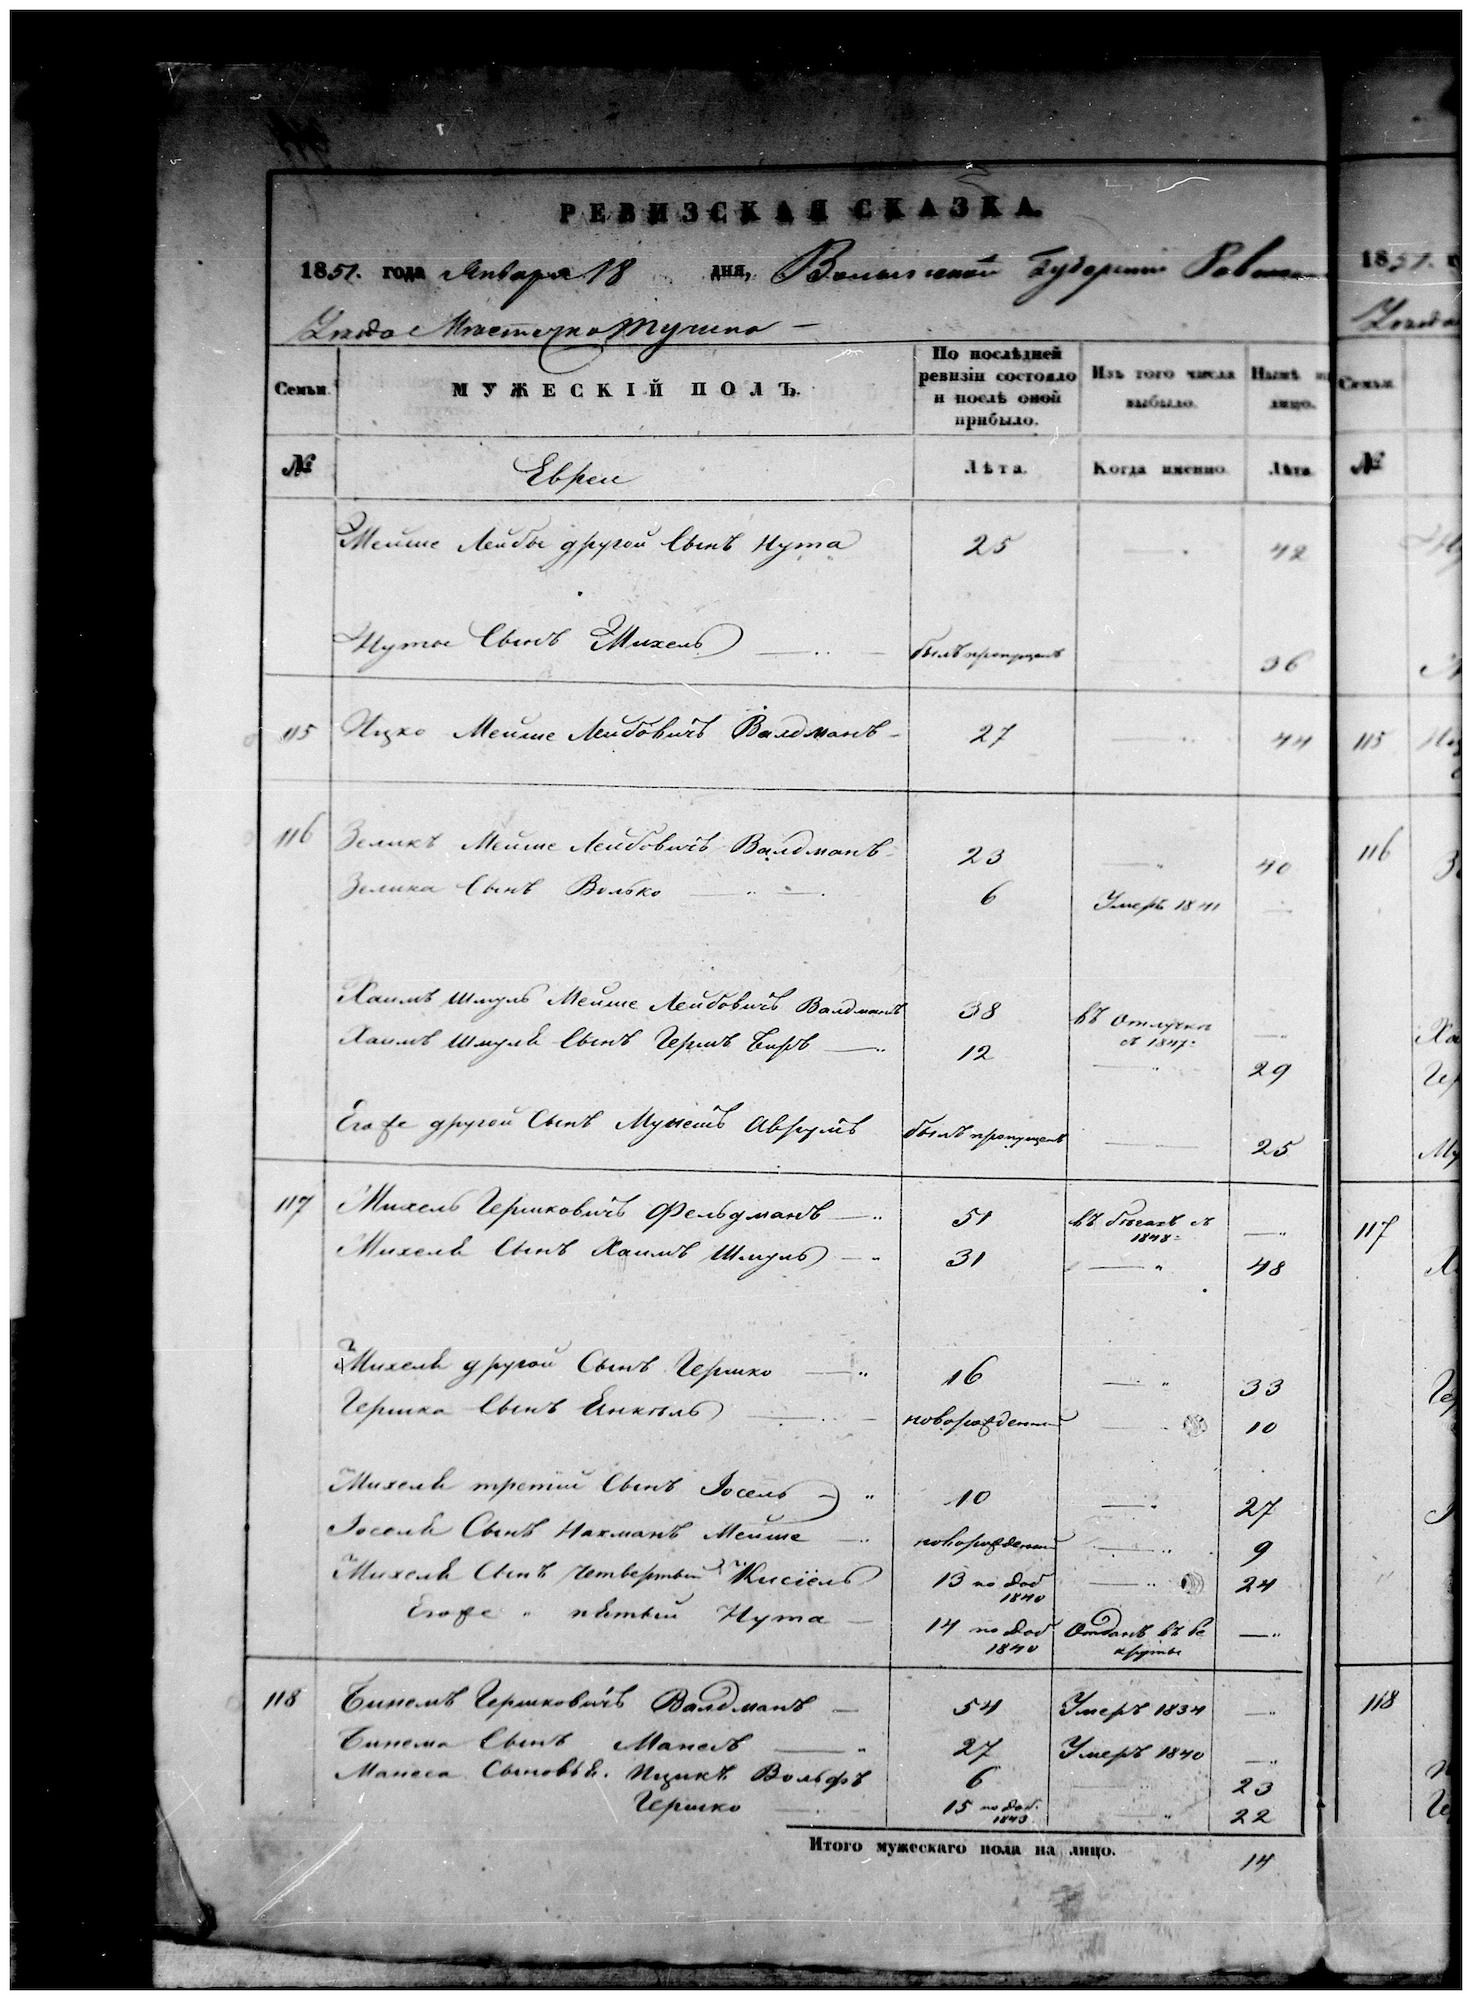 РЕВИЗСКАЯ СКАЗКА.
1851. года Января 18 дня, Волынской Губернiи
Уезда Местечка Тучина —
Семьи.
МУЖЕСКІЙ ПОЛЪ.
По послѣдней ревизіи состояло и послѣ оной прибыло.
Изъ того числа выбыло.
Нынѣ на лицо.
№ Евреи Лѣта. Когда именно. Лѣта
Мейше Лейбы другой Сынъ Нута 25 — 42
Нуты Сынъ Михель былъ пропущенъ 36
115 Ицко Мейше Лейбовичъ Валдманъ 27 — 44
116 Зеликъ Мейше Лейбовичъ Валдманъ 23 — 40
Зелика Сынъ Волько 6 Умеръ 1841 —
Хаимъ Шмуль Мейше Лейбовичъ Валдманъ 38 въ отлучке
съ 1847 —
Хаимъ Шмуля Сынъ Гершъ Беръ 12 — 29
Егоже другой Сынъ Мунешъ Аврумъ былъ пропущенъ — 25
117 Михель Гершковичъ Фельдманъ 51 въ бегахъ съ
1848 —
Михеля Сынъ Хаимъ Шмуль 31 — 48
Михеля другой Сынъ Гершко 16 — 33
Гершка Сынъ Янкель новорожденный — 10
Михеля третий Сынъ Іосель 10 — 27
Іоселя Сынъ Нахманъ Мейше новорожденный — 9
Михеля Сынъ четвертый Кисіель 13 по доб
1840 — 24
Егоже „ пятый Нута 14 по доб
1840 Отданъ въ рекруты —
118 Бинемъ Гершковичъ Валдманъ 54 Умеръ 1834 —
Бинема Сынъ Манесъ 27 Умеръ 1840 —
Манеса Сыновья. Ицикъ Вольфъ 6 — 23
Гершко 15 по доб.
1843 — 22
Итого мужескаго пола на лицо. 14
1851. г
Семьи.
№
115
116
117
118